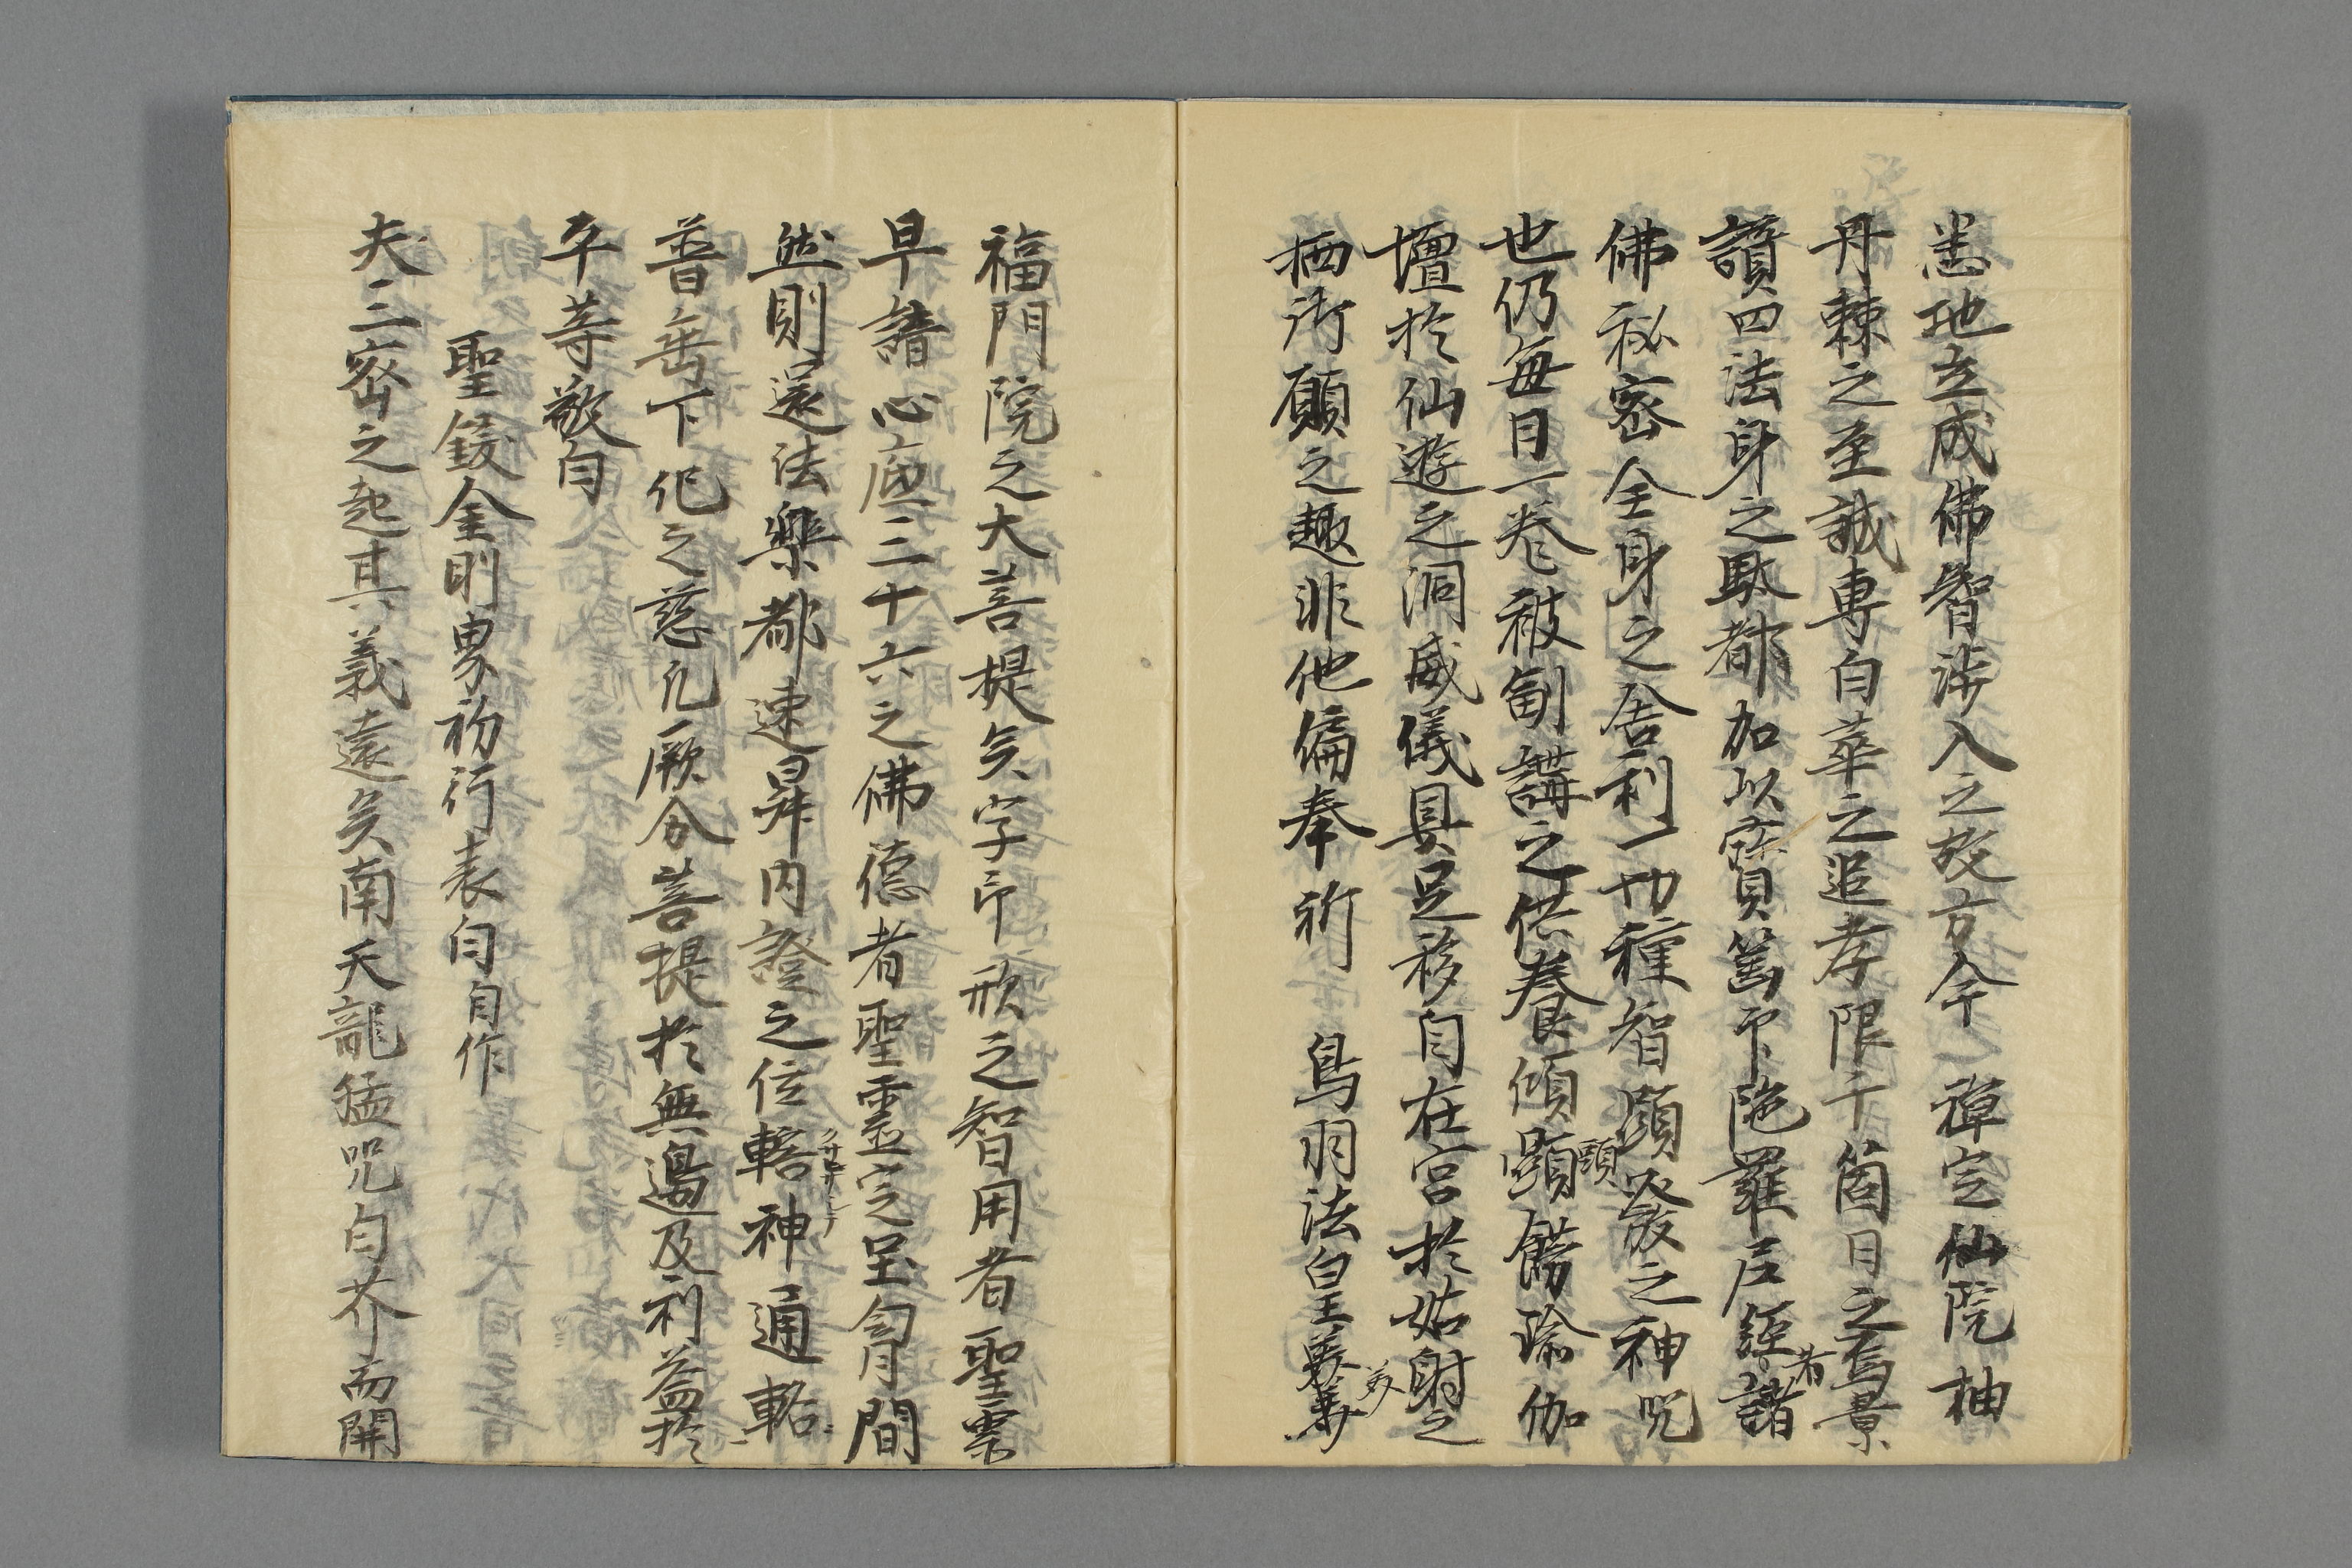 悉地立成佛智渉入之故方今 禅定仙院抽
丹棘之至誠専白華之追孝限千箇日之烏景
讃四法身之駄都加以寳篋印陁羅尼経諸者
佛秘密全身之舎利一切種智顕發之神呪
也仍毎月一巻被劄講之供養傾顕頭餝瑜伽
壇於仙遊之洞威儀具足移自在宮於姑射之
栖御願之趣非他偏奉祈 鳥羽法皇美
福門院之大菩提矣字印形之智用者聖霊
早諳心底三十六之佛德者聖霊定呈胷間
然則還法樂都速昇内證之位轄神通轄
普垂下化之慈凡厥分菩提於無邊及利益於
平等敬白
聖錢金剛界初行表白自作
夫三密之起其義遠矣南天龍猛呪白芥而開